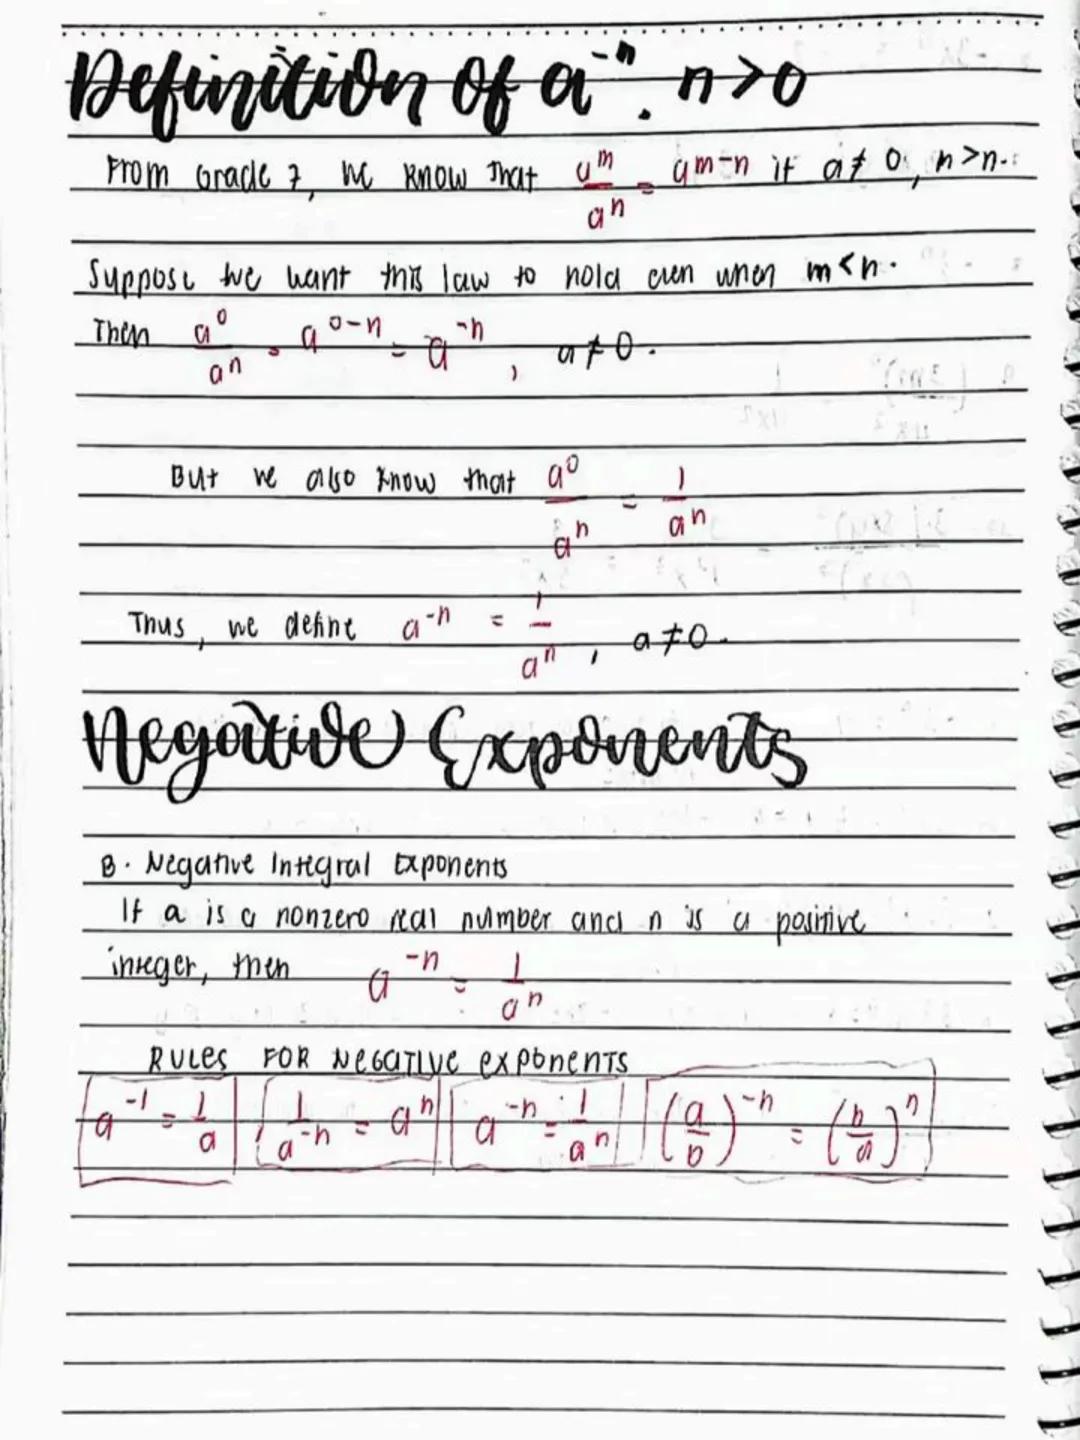 Definition of a⁻ⁿ. n>0
From Grade 7, we know that aᵐ/aⁿ = aᵐ⁻ⁿ if a ≠ 0, n>n.
Suppose we want this law to hold even when m<n.
Then a⁰/aⁿ = a⁰⁻ⁿ = a⁻ⁿ, a ≠ 0.
But we also know that a⁰/aⁿ = 1/aⁿ
Thus, we define a⁻ⁿ = 1/aⁿ, a ≠ 0.
Negative Exponents
B. Negative Integral Exponents
If a is a nonzero real number and n is a positive
integer, then a⁻ⁿ = 1/aⁿ
RULES FOR NEGATIVE exponents
a⁻¹ = 1/a 1/a⁻ⁿ = aⁿ a⁻ⁿ = 1/aⁿ (a/b)⁻ⁿ = (b/a)ⁿ